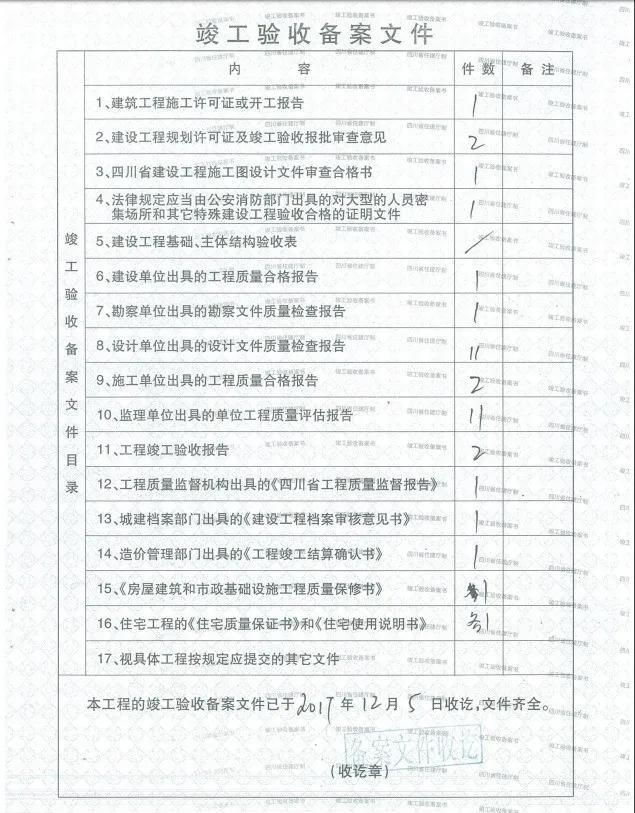 竣工验收备案文件
内 容 件数 备注
竣工验收备案文件目录
1、建筑工程施工许可证或开工报告 1
2、建设工程规划许可证及竣工验收报批审查意见 2
3、四川省建设工程施工图设计文件审查合格书 1
4、法律规定应当由公安消防部门出具的对大型的人员密
集场所和其它特殊建设工程验收合格的证明文件 1
5、建设工程基础、主体结构验收表 /
6、建设单位出具的工程质量合格报告 1
7、勘察单位出具的勘察文件质量检查报告 1
8、设计单位出具的设计文件质量检查报告 11
9、施工单位出具的工程质量合格报告 2
10、监理单位出具的单位工程质量评估报告 11
11、工程竣工验收报告 2
12、工程质量监督机构出具的《四川省工程质量监督报告》 1
13、城建档案部门出具的《建设工程档案审核意见书》 1
14、造价管理部门出具的《工程竣工结算确认书》 1
15、《房屋建筑和市政基础设施工程质量保修书》 1
16、住宅工程的《住宅质量保证书》和《住宅使用说明书》 各1
17、视具体工程按规定应提交的其它文件
本工程的竣工验收备案文件已于2017年12月5日收讫,文件齐全。
备案文件收讫
(收讫章)